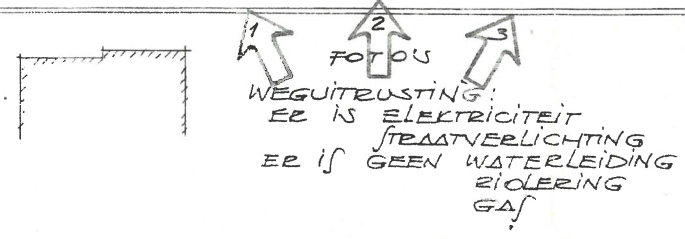 1 2 3
FOTO'S
WEGUITRUSTING:
ER IS ELEKTRICITEIT
STRAATVERLICHTING
ER IS GEEN WATERLEIDING
RIOLERING
GAS